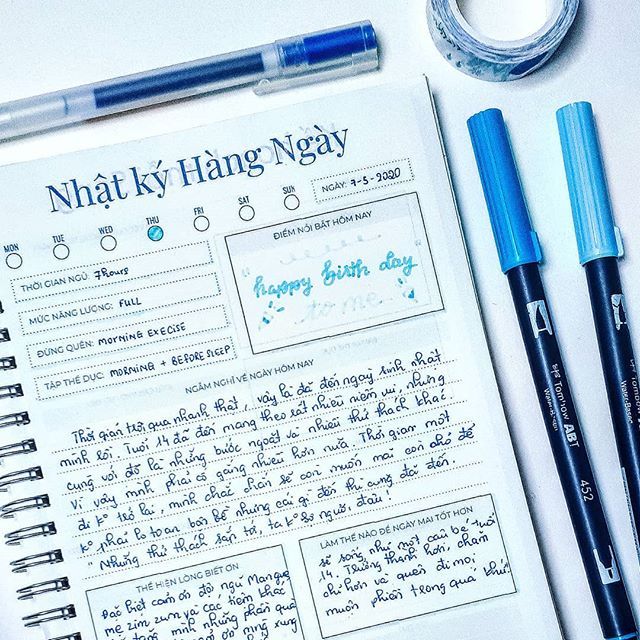 Nhật ký Hàng Ngày
MON TUE WED THU FRI SAT SUN
NGÀY: 7-5-2020
THỜI GIAN NGỦ: 7hours
MỨC NĂNG LƯỢNG: FULL
ĐỪNG QUÊN: MORNING EXECISE
TẬP THỂ DỤC: MORNING + BEFORE SLEEP
ĐIỂM NỔI BẬT HÔM NAY
happy birth day
to me
NGẪM NGHĨ VỀ NGÀY HÔM NAY
Thời gian trôi qua nhanh thật, vậy là đã đến ngày sinh nhật
mình rồi. Tuổi 14 đã đến mang theo rất nhiều niềm vui, nhưng
cùng với đó là những bước ngoặt và nhiều thử thách khác.
Vì vậy mình phải cố gắng nhiều hơn nữa. Thời gian một
đi ko trở lại, mình chắc chắn sẽ
ko phải lo toan bởi những cái gì đến thì cũng đã đến.
"Những thử thách sắp tới, ta ko sợ ngươi, đâu!
THỂ HIỆN LÒNG BIẾT ƠN
Đặc biệt cảm ơn đội ngũ Mangue
mẹ zim zum và các tiệm khác
tặng mình những phần quà
LÀM THẾ NÀO ĐỂ NGÀY MAI TỐT HƠN
sẽ sống như một cậu bé tuổi
14. Trưởng thành hơn, chăm
chỉ hơn và quên đi mọi
muộn phiền trong quá khứ
Tombow ABT
452
Tombow